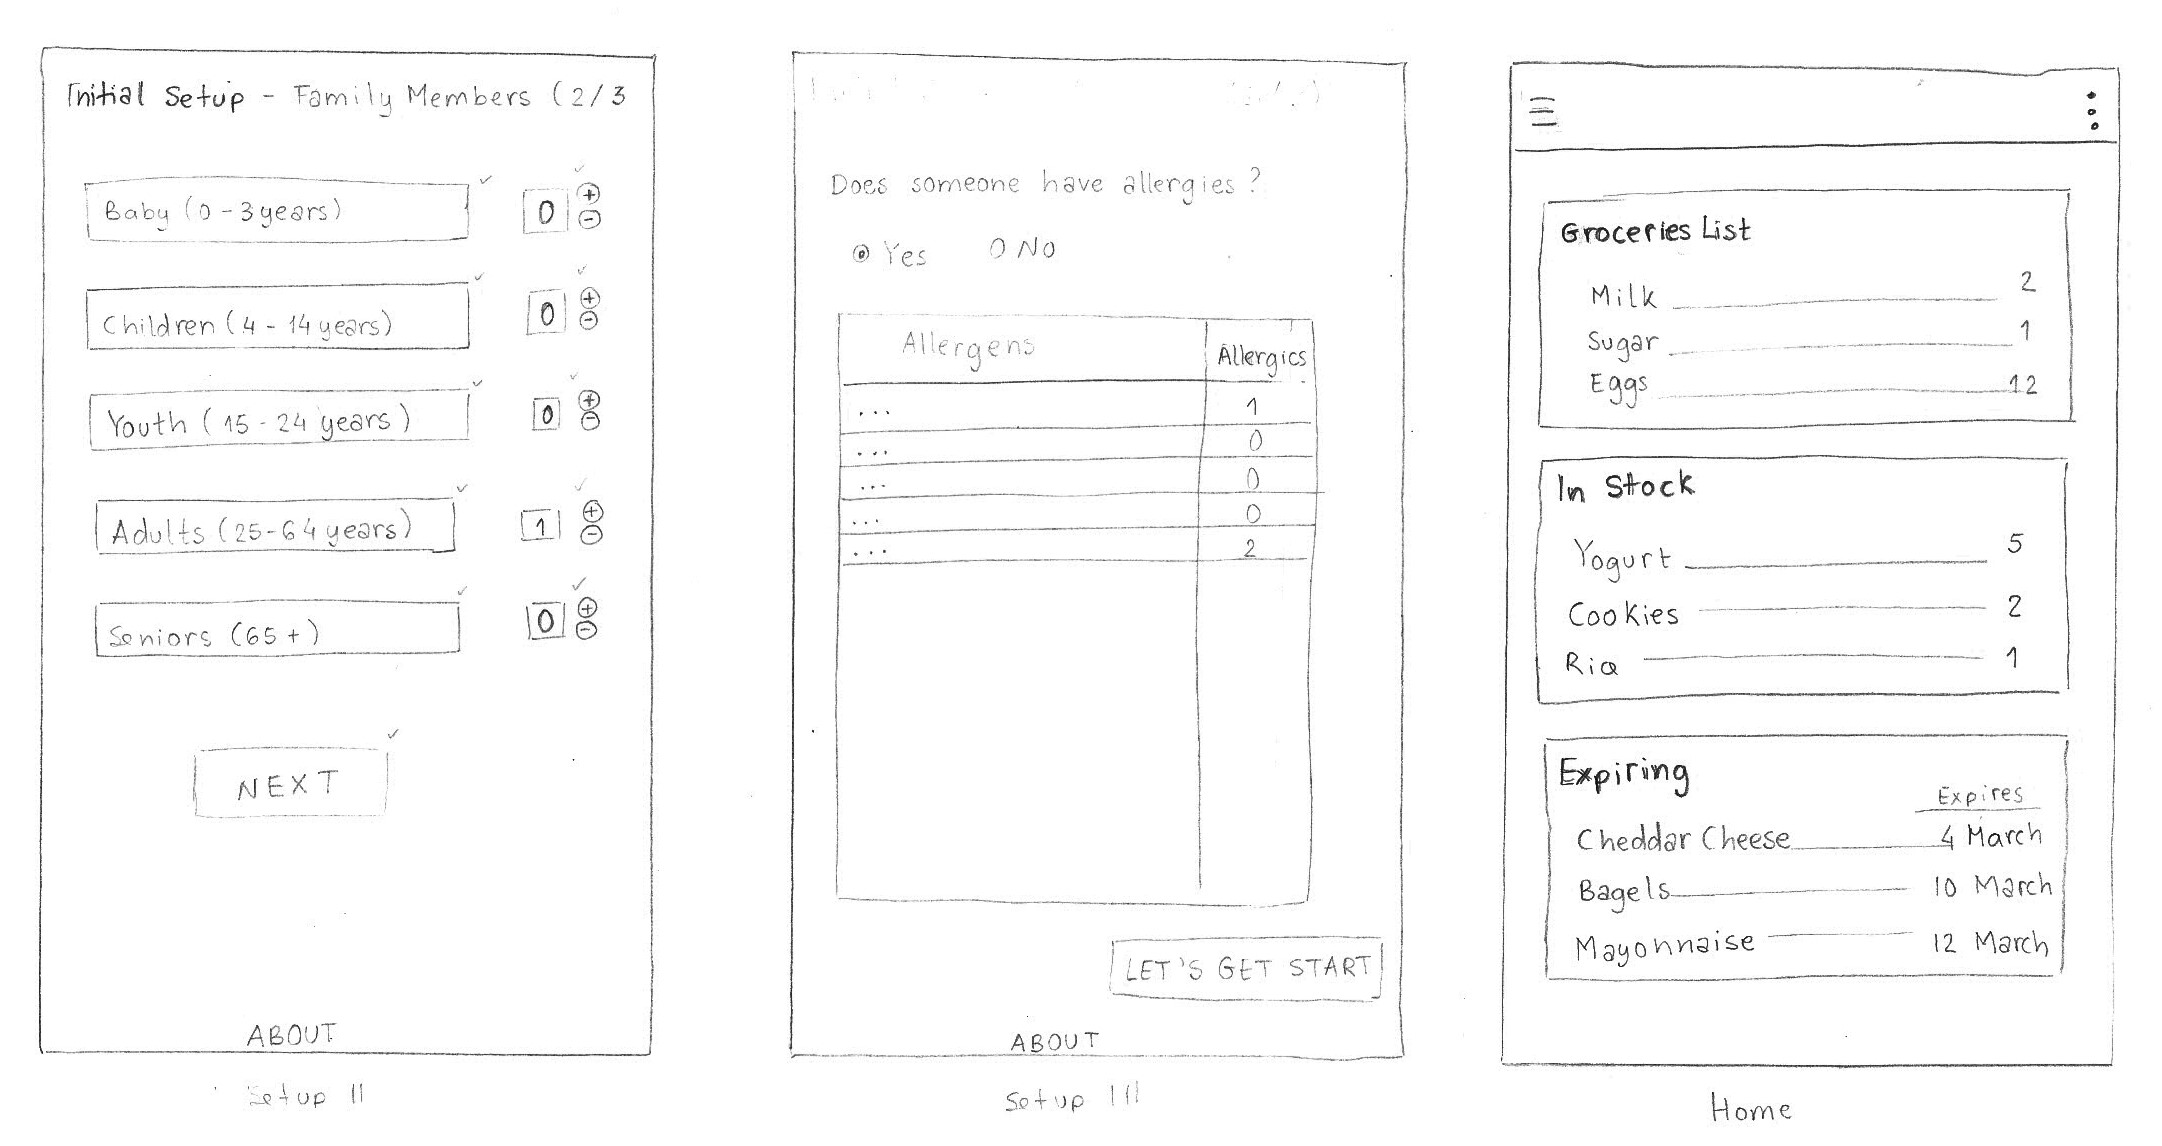 Initial Setup - Family Members (2/3
Baby (0-3 years) 0 + -
Children (4 - 14 years) 0 + -
Youth (15 - 24 years) 0 + -
Adults (25-64 years) 1 + -
Seniors (65+) 0 + -
NEXT
ABOUT
Setup II
Does someone have allergies ?
Yes No
Allergens Allergics
... 1
... 0
... 0
... 0
... 2
LET'S GET START
ABOUT
Setup III
Groceries List
Milk 2
Sugar 1
Eggs 12
In Stock
Yogurt 5
Cookies 2
1
Expiring
Expires
Cheddar Cheese 4 March
Bagels 10 March
Mayonnaise 12 March
Home